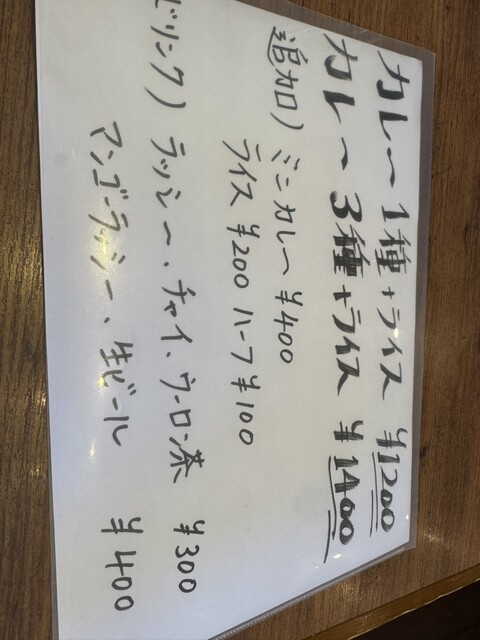 カレー 1種+ライス ¥1200
カレー 3種+ライス ¥1400
追加) ミニカレー ¥400
ライス ¥200 ハーフ ¥100
ドリンク) ラッシー、チャイ、ウーロン茶 ¥300
マンゴーラッシー、生ビール ¥400